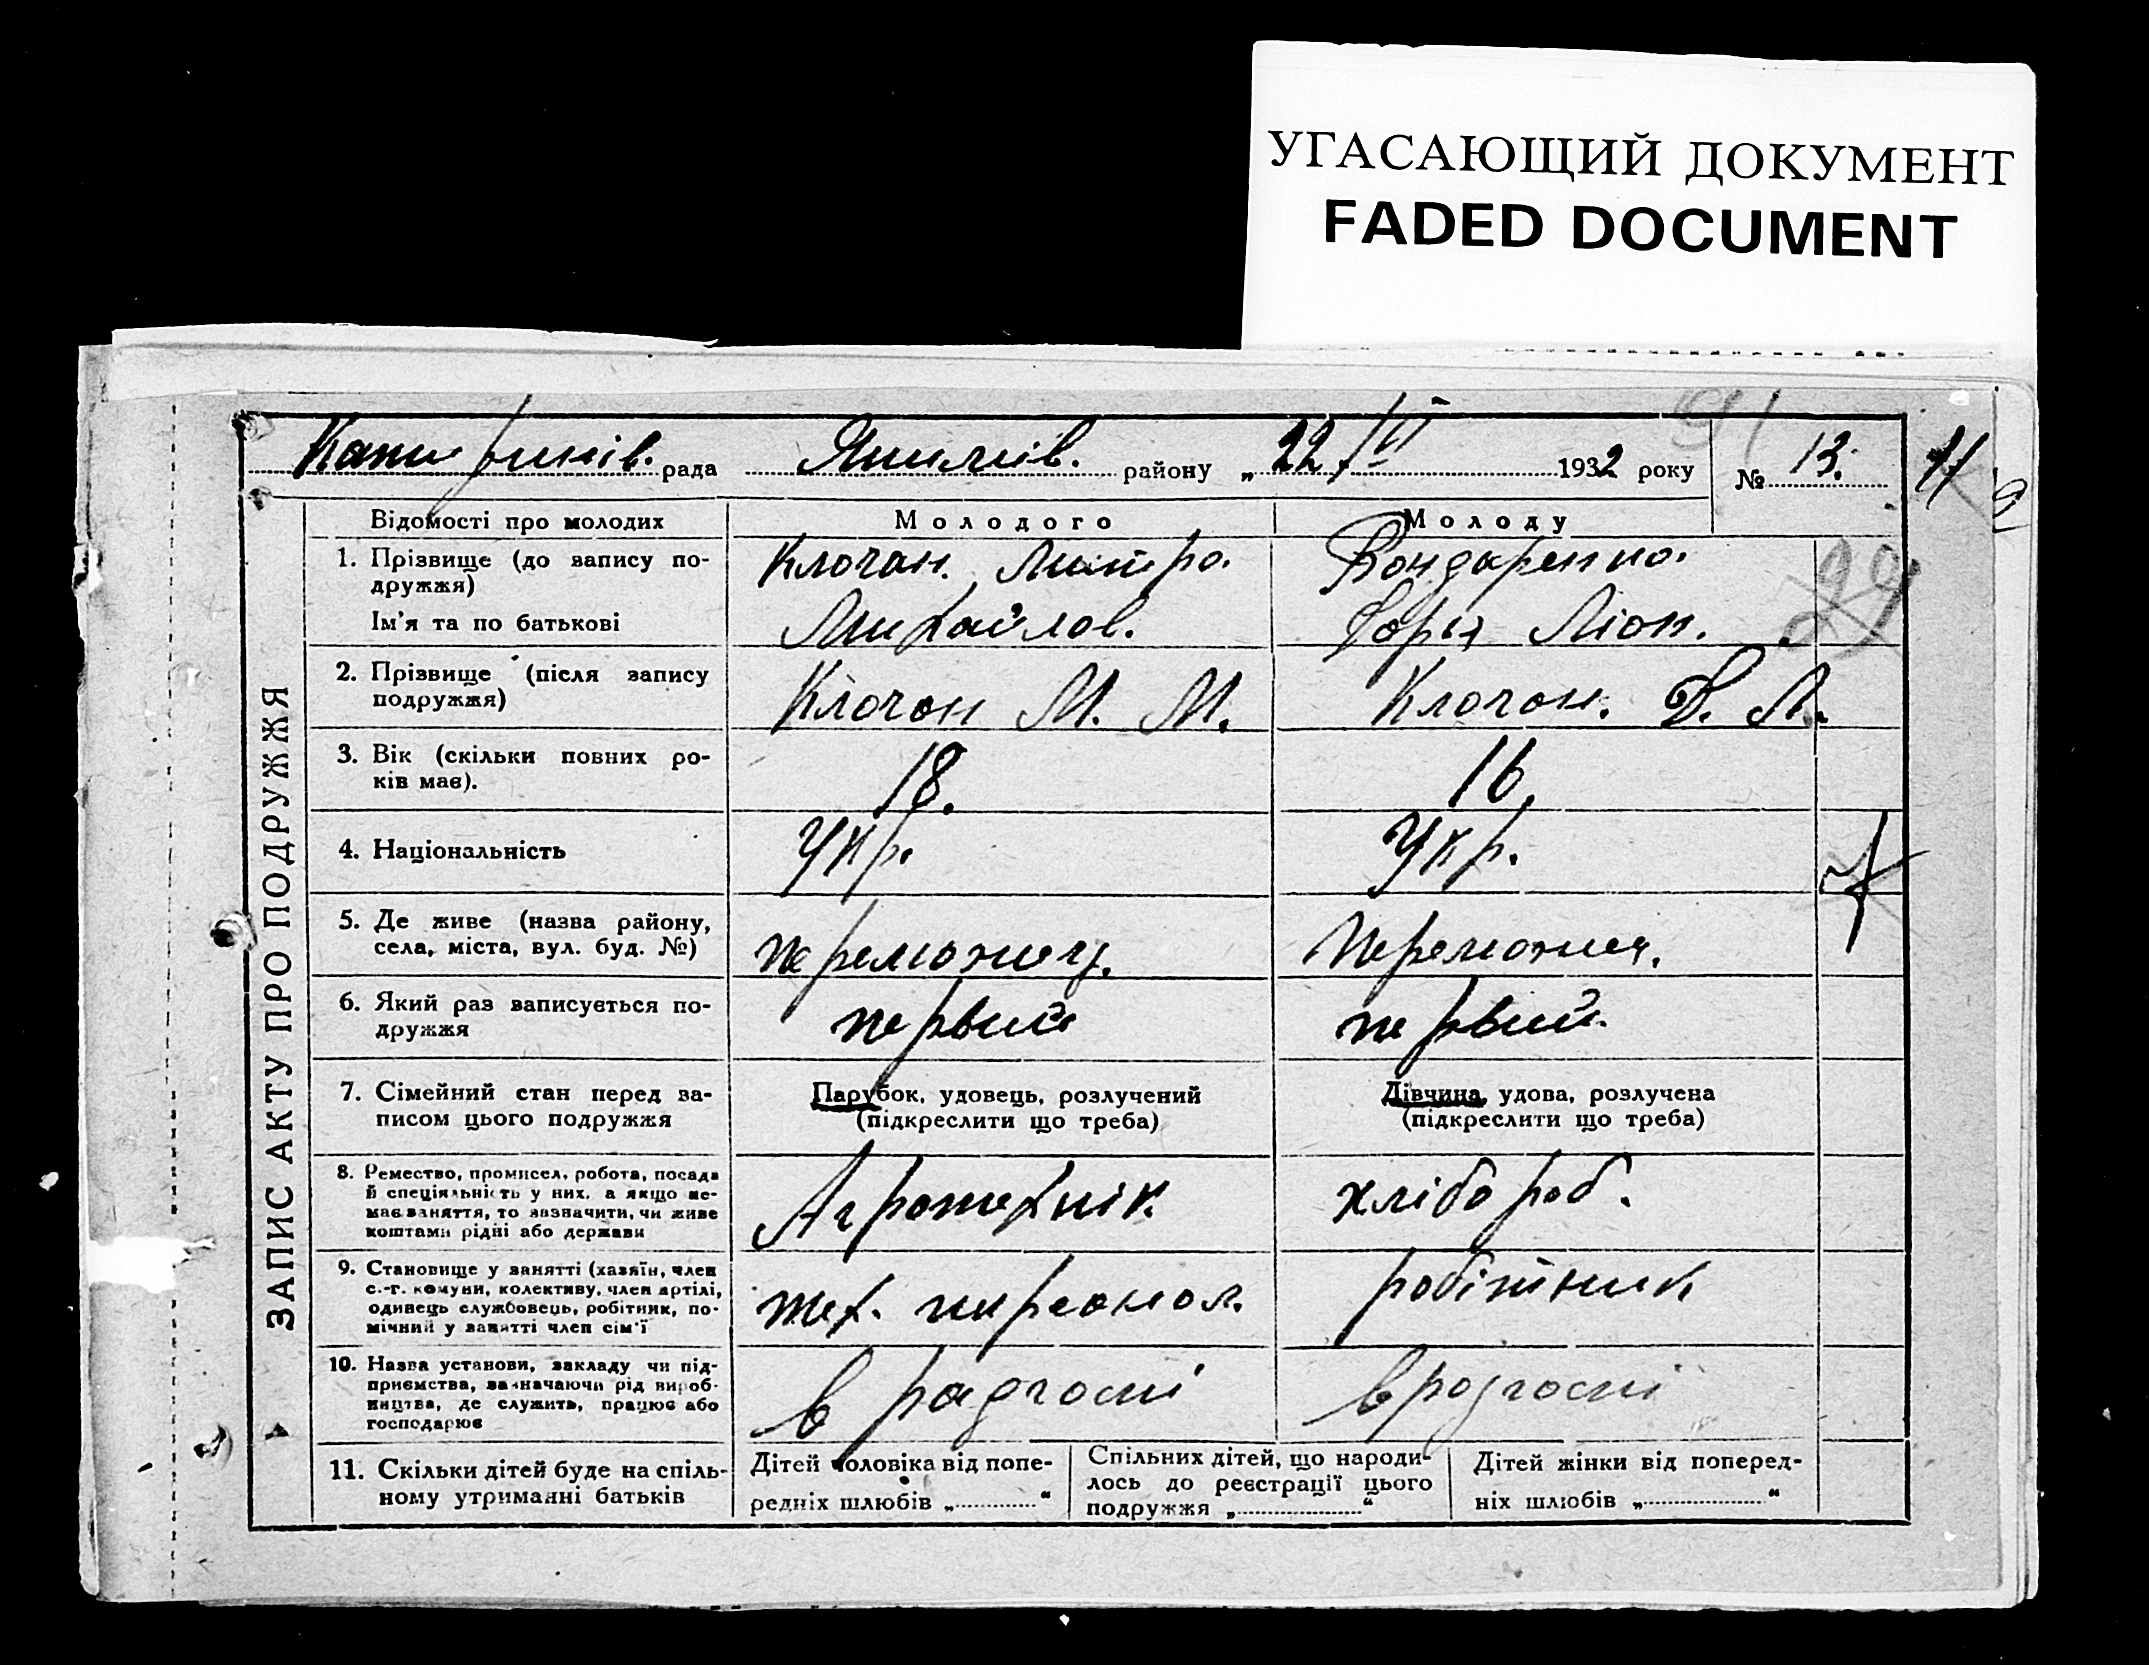 УГАСАЮЩИЙ ДОКУМЕНТ
FADED DOCUMENT
91
рада Якимів. району „ 22/VI 1932 року № 13.
ЗАПИС АКТУ ПРО ПОДРУЖЖЯ
Відомості про молодих Молодого Молоду
1. Прізвище (до запису по-
дружжя)
Ім'я та по батькові
Клочан. Митро.
Михайлов.
Бондаренко.
Дорья Ліон.
29
2. Прізвище (після запису
подружжя)
Клочан М. М.
Клочан. Д. Л.
3. Вік (скільки повних ро-
ків має).
18.
16.
4. Національність
Укр.
Укр.
5. Де живе (назва району,
села, міста, вул. буд. №)
6. Який раз записується по-
дружжя
первий
первий.
7. Сімейний стан перед за-
писом цього подружжя
Парубок, удовець, розлучений
(підкреслити що треба)
Дівчина, удова, розлучена
(підкреслити що треба)
8. Ремество, промисел, робота, посада
й спеціяльність у них, а якщо не-
має заняття, то зазначити, чи живе
коштами рідні або держави
Агротехнік
хлібороб.
9. Становище у занятті (хазяїн, член
с.-г. комуни, колективу, член артілі,
одинець службовець, робітник, по-
мічний у занятті член сім'ї
тех.
робітник
10. Назва установи, закладу чи під-
приємства, зазначаючи рід вироб-
ництва, де служить, працює або
господарює
в радгоспі
в радгоспі
11. Скільки дітей буде на спіль-
ному утриманні батьків
Дітей чоловіка від попе-
редніх шлюбів „ “
Спільних дітей, що народи-
лось до реєстрації цього
подружжя „ “
Дітей жінки від поперед-
ніх шлюбів „ “